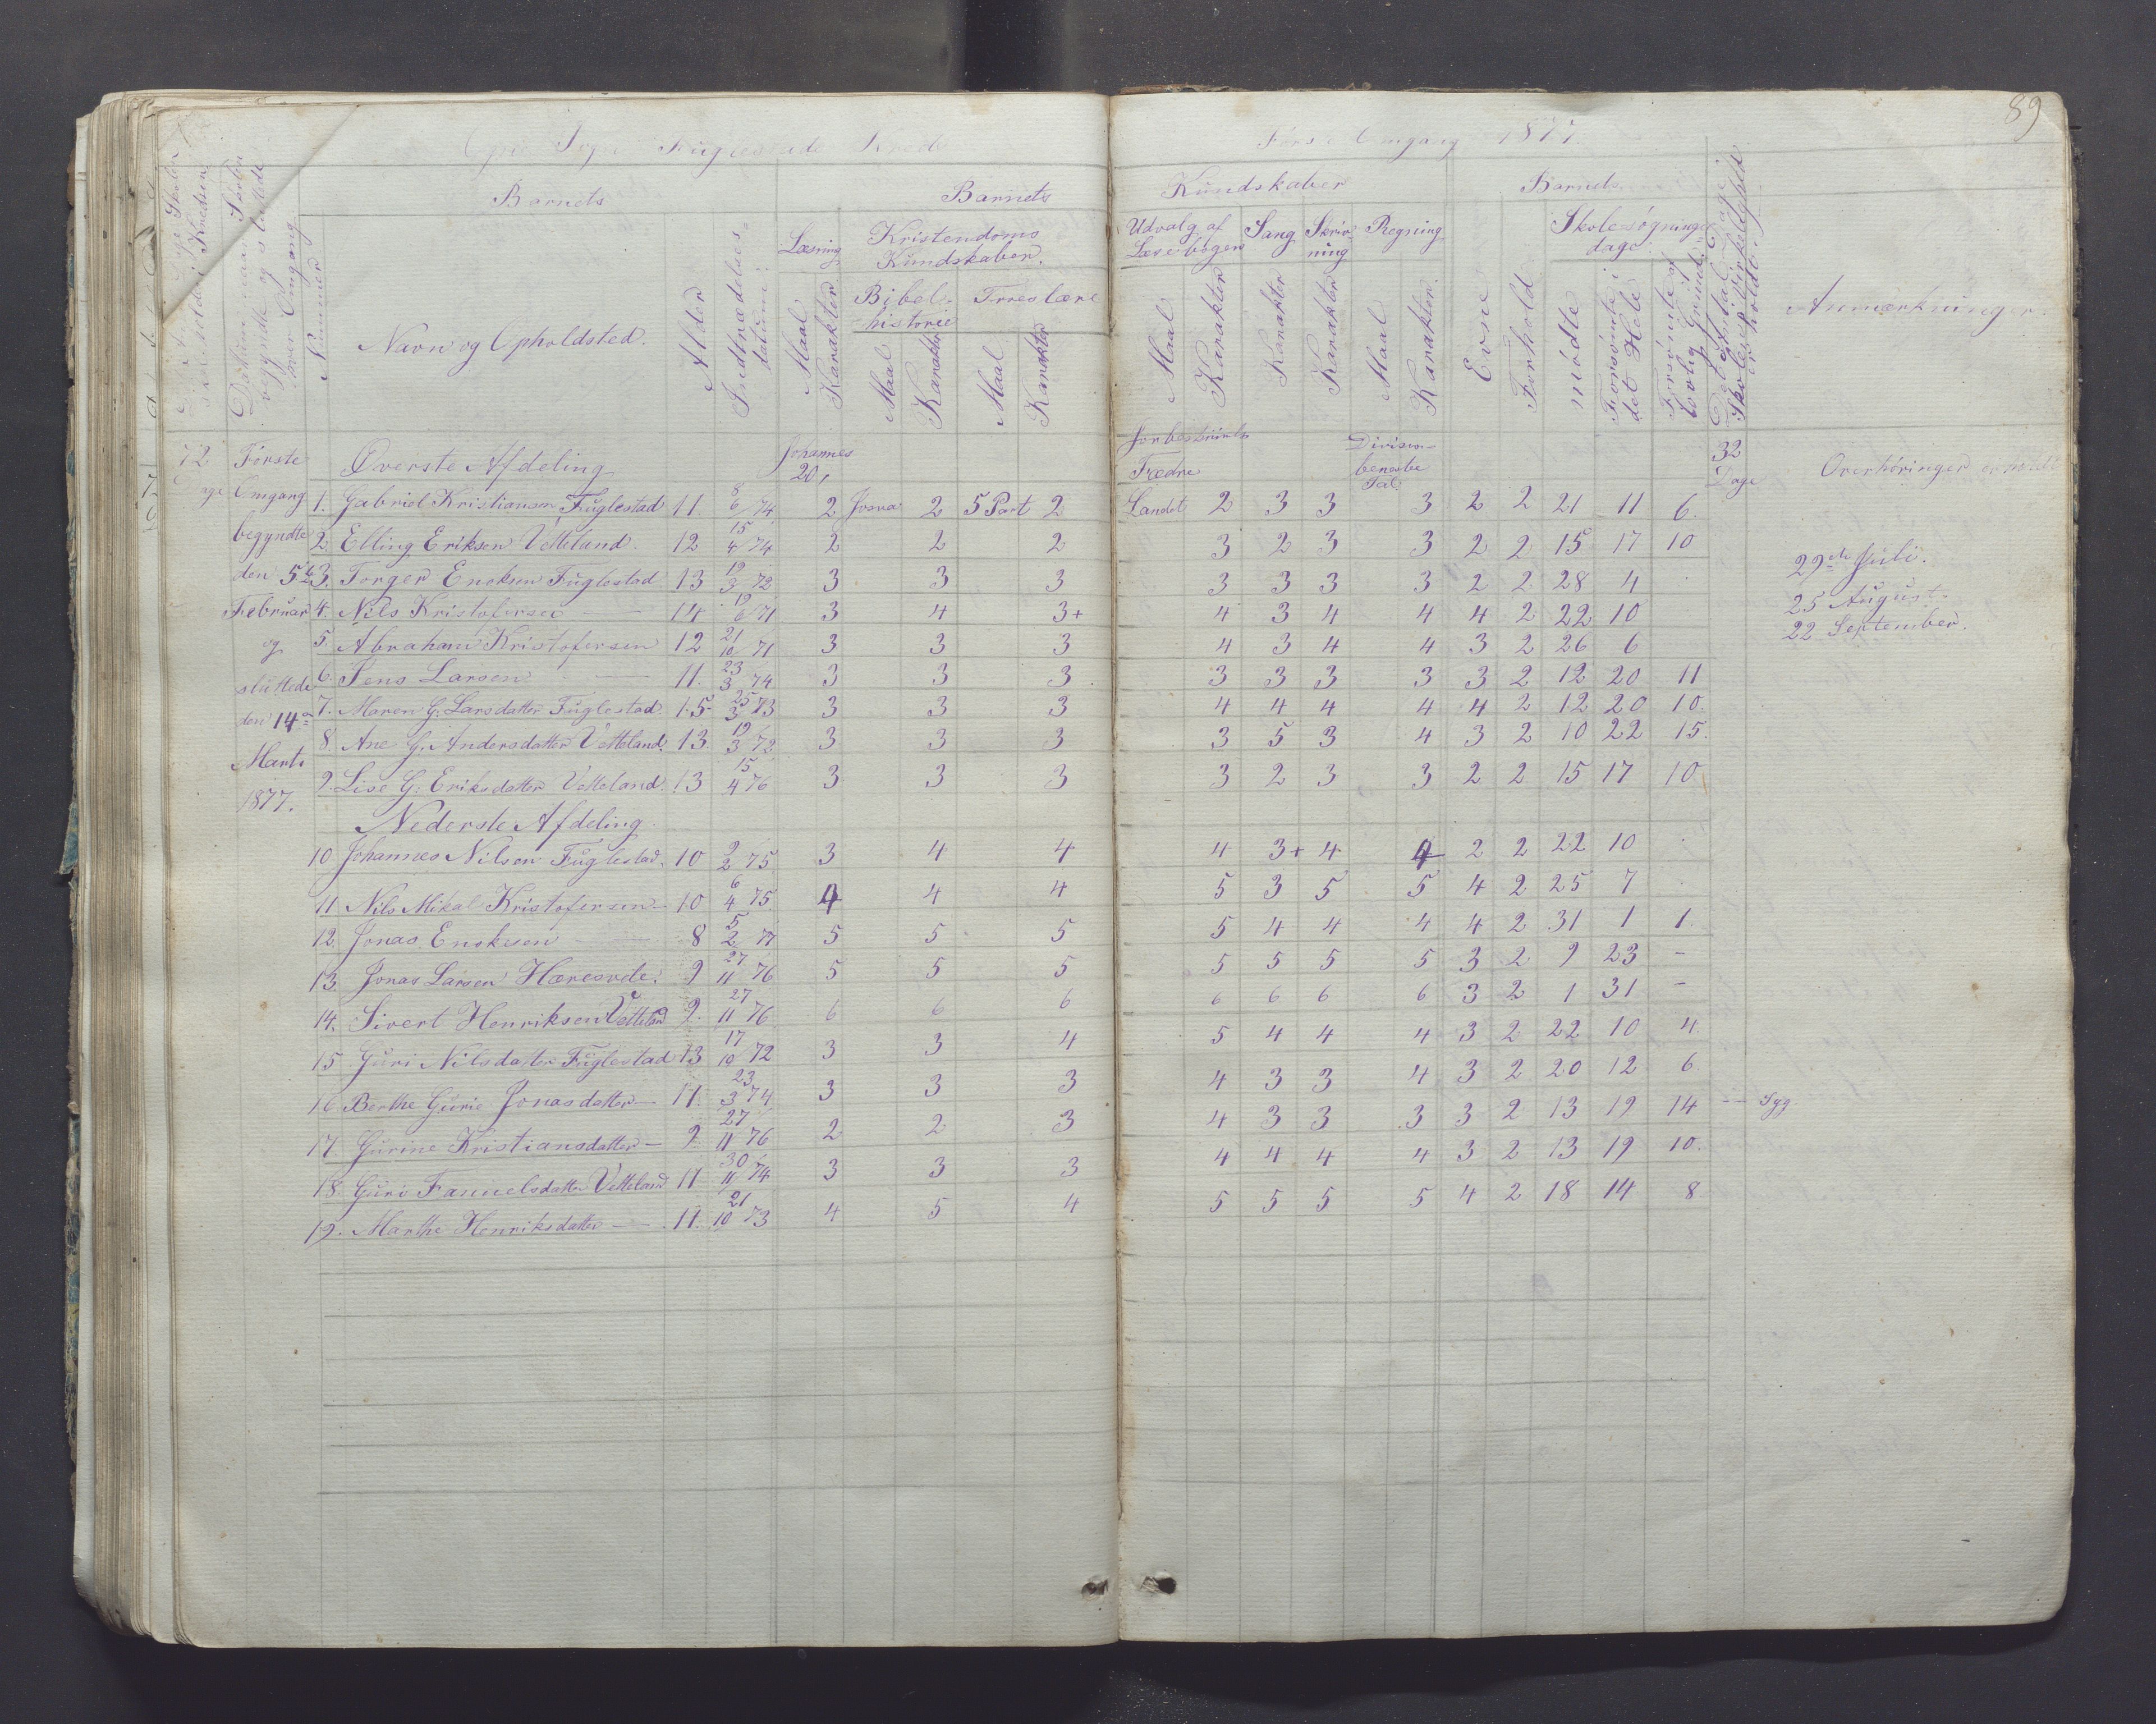 89
Fuglestad Kreds
Første Omgang 1877.
Barnets
Barnets
Kundskaber
Barnets
Læsning
Kristendoms Kundskaber.
Udvalg af Læsebogen
Sang
Skrivning
Regning
Skolesøgningsdage
Datum naar Skolen begyndte og sluttede hver Omgang
Nummer
Navn og Opholdsted.
Alder
Indtrædelsesdatum
Maal
Karakter
Bibelhistorie
Troeslære
Maal
Karakter
Maal
Karakter
Maal
Karakter
Karakter
Karakter
Maal
Karakter.
Evne
Forhold
mødte
Forsømte i det Hele
Forsømte af lovlig Grund
Anmærkninger.
72 Første Øverste Afdeling Johannes 20, 32 Dage
Fædre Landet
Omgang 1. Gabriel Kristiansen Fuglestad 11. 8/6 74 2 Josva 2 5 Part 2 2 3 3 3 2 2 21 11 6.
begyndte 2 Elling Eriksen Vetteland. 12 15/4 74 2 2 2 3 2 3 3 2 2 15 17 10
den 5te 3. Torger Enoksen Fuglestad 13 19/3 72 3 3 3 3 3 3 3 2 2 28 4
Februar 4. Nils Kristofersen — 14 19/6 71 3 4 3+ 4 3 4 4 4 2 22 10
og 5. Abraham Kristofersen 12 21/10 71 3 3 3 4 3 4 4 3 2 26 6
sluttede 6. Jens Larsen — 11. 23/3 74 3 3 3 3 3 3 3 3 2 12 20 11
den 14de 7. Maren G. Larsdatter Fuglestad 15 25/3 73 3 3 3 4 4 4 4 4 2 12 20 10.
8. Ane G. Andersdatter Vetteland. 13. 19/3 72 3 3 3 3 5 3 4 3 2 10 22 15.
Marts 9. Lise G. Eriksdatter Vetteland. 13 15/4 76 3 3 3 3 2 3 3 2 2 15 17 10
1877.
Nederste Afdeling.
10 Johannes Nilsen Fuglestad. 10 9/2 75 3 4 4 4 3+ 4 4 2 2 22 10
11 Nils Mikal Kristofersen — 10 6/4 75 4 4 4 5 3 5 5 4 2 25 7
12. Jonas Enoksen — 8 5/2 77 5 5 5 5 4 4 4 4 2 31 1 1.
13. Jonas Larsen 9 27/11 76 5 5 5 5 5 5 5 3 2 9 23 –
14. Sivert Henriksen Vetteland 9. 27/11 76 6 6 6 6 6 6 6 3 2 1 31 –
15 Guri Nilsdatter Fuglestad 13 17/10 72 3 3 4 5 4 4 4 3 2 22 10 4.
16 Berthe Gurie Jonasdatter — 11. 23/3 74 3 3 3 4 3 3 4 3 2 20 12 6
17. Gurine Kristiansdatter — 9. 27/11 76 2 2 3 4 3 3 3 3 2 13 19 14 — Syg
18. Guri Vetteland 11 30/11 74 3 3 3 4 4 4 4 3 2 13 19 10.
19. Marthe Henriksdatter — 11. 21/10 73 4 5 4 5 5 5 5 4 2 18 14 8
Overhøringer er holdt
29de Juli.
25 August.
22 September.